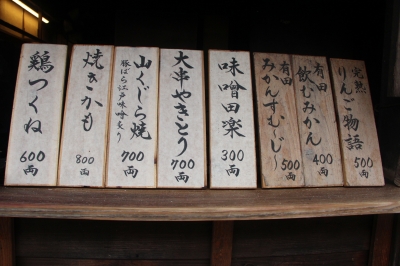 鶏つくね
600
両
焼きかも
800
両
山くじら焼
豚ばら江戸味噌炙り
700
両
大串やきとり
700
両
味噌田楽
300
両
有田
みかんすむじ〜
500
両
有田
飲むみかん
400
両
完熟
りんご物語
500
両